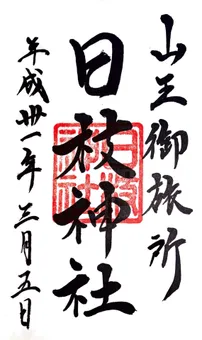 山王御旅所
日枝神社
平成卅一年三月五日